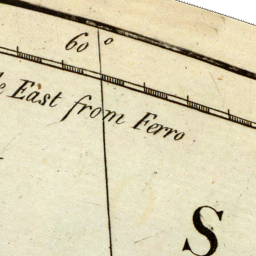 60°
East from Ferro
S